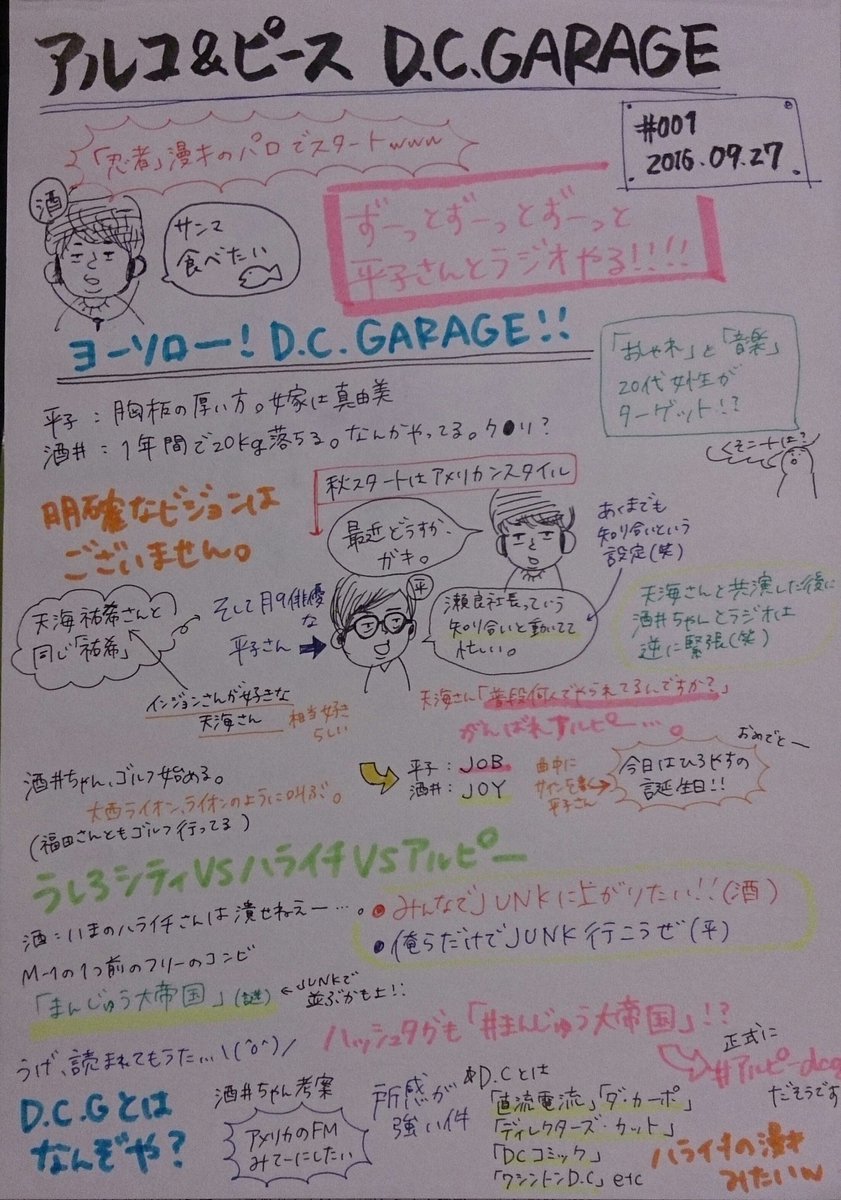 アルコ&ピース D.C.GARAGE
#001
2016.09.27
「忍者」漫才のパロでスタートwww
酒
サンマ
食べたい
ずーっとずーっとずーっと
平子さんとラジオやる!!!!
ヨーソロー! D.C.GARAGE!!
「おしゃれ」と「音楽」
20代女性が
ターゲット!?
平子:胸板の厚い方。嫁は真由美
酒井:1年間で20kg落ちる。なんかやってる。ク●リ?
秋スタートはアメリカンスタイル
明確なビジョンは
ございません。
最近どうすか、
ガキ。
あくまでも
知り合いという
設定(笑)
平
瀬良社長っていう
知り合いと動いてて
忙しい。
天海さんと共演した後に
酒井ちゃんとラジオは
逆に緊張(笑)
天海祐希さんと
同じ「祐希」
そして月9俳優
な
平子さん
インジョンさんが好きな
天海さん
相当好き
らしい
天海さん「普段何人でやられてるんですか?」
がんばれアルピー…。
酒井ちゃん、ゴルフ始める。
大西ライオン、ライオンのように叫ぶ。
(福田さんともゴルフ行ってる)
平子:JOB
酒井:JOY
曲中に
サインを書く
平子さん
おめでとー
今日はひろやすの
誕生日!!
うしろシティVSハライチVSアルピー
酒:いまのハライチさんは潰せねえー…。
M-1の1つ前のフリーのコンビ
「まんじゅう大帝国」(謎)
←JUNKで
並ぶかもよ!!
●みんなでJUNKに上がりたい!!(酒)
●俺らだけでJUNK行こうぜ(平)
ハッシュタグも「#まんじゅう大帝国」!?
正式に
#アルピーdcg
だそうです
うげ、読まれてもうた…\(^o^)/
D.C.Gとは
なんぞや?
酒井ちゃん考案
アメリカのFM
みてーにしたい
所感が
強い件
D.Cとは
「直流電流」「ダ・カーポ」
「ディレクターズ・カット」
「DCコミック」
「ワシントンD.C」etc
ハライチの漫才
みたいw